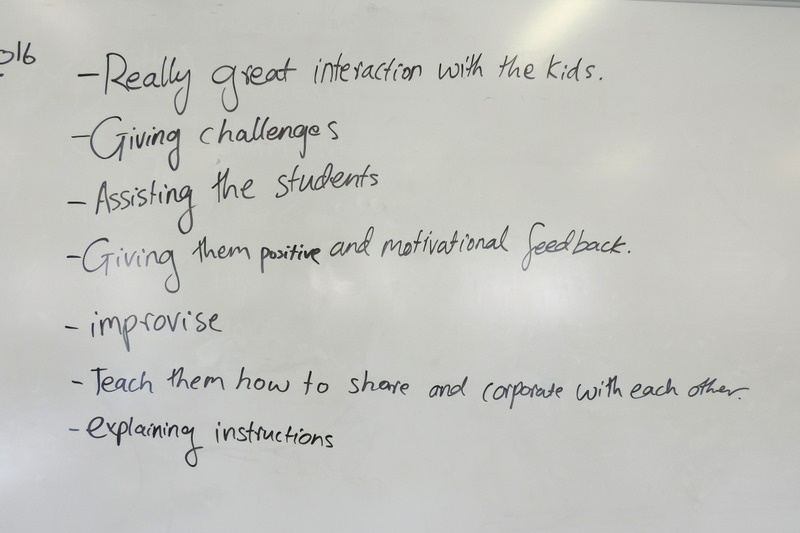 016
- Really great interaction with the kids.
- Giving challenges
- Assisting the students
- Giving them positive and motivational feedback.
- improvise
- Teach them how to share and corporate with each other.
- explaining instructions